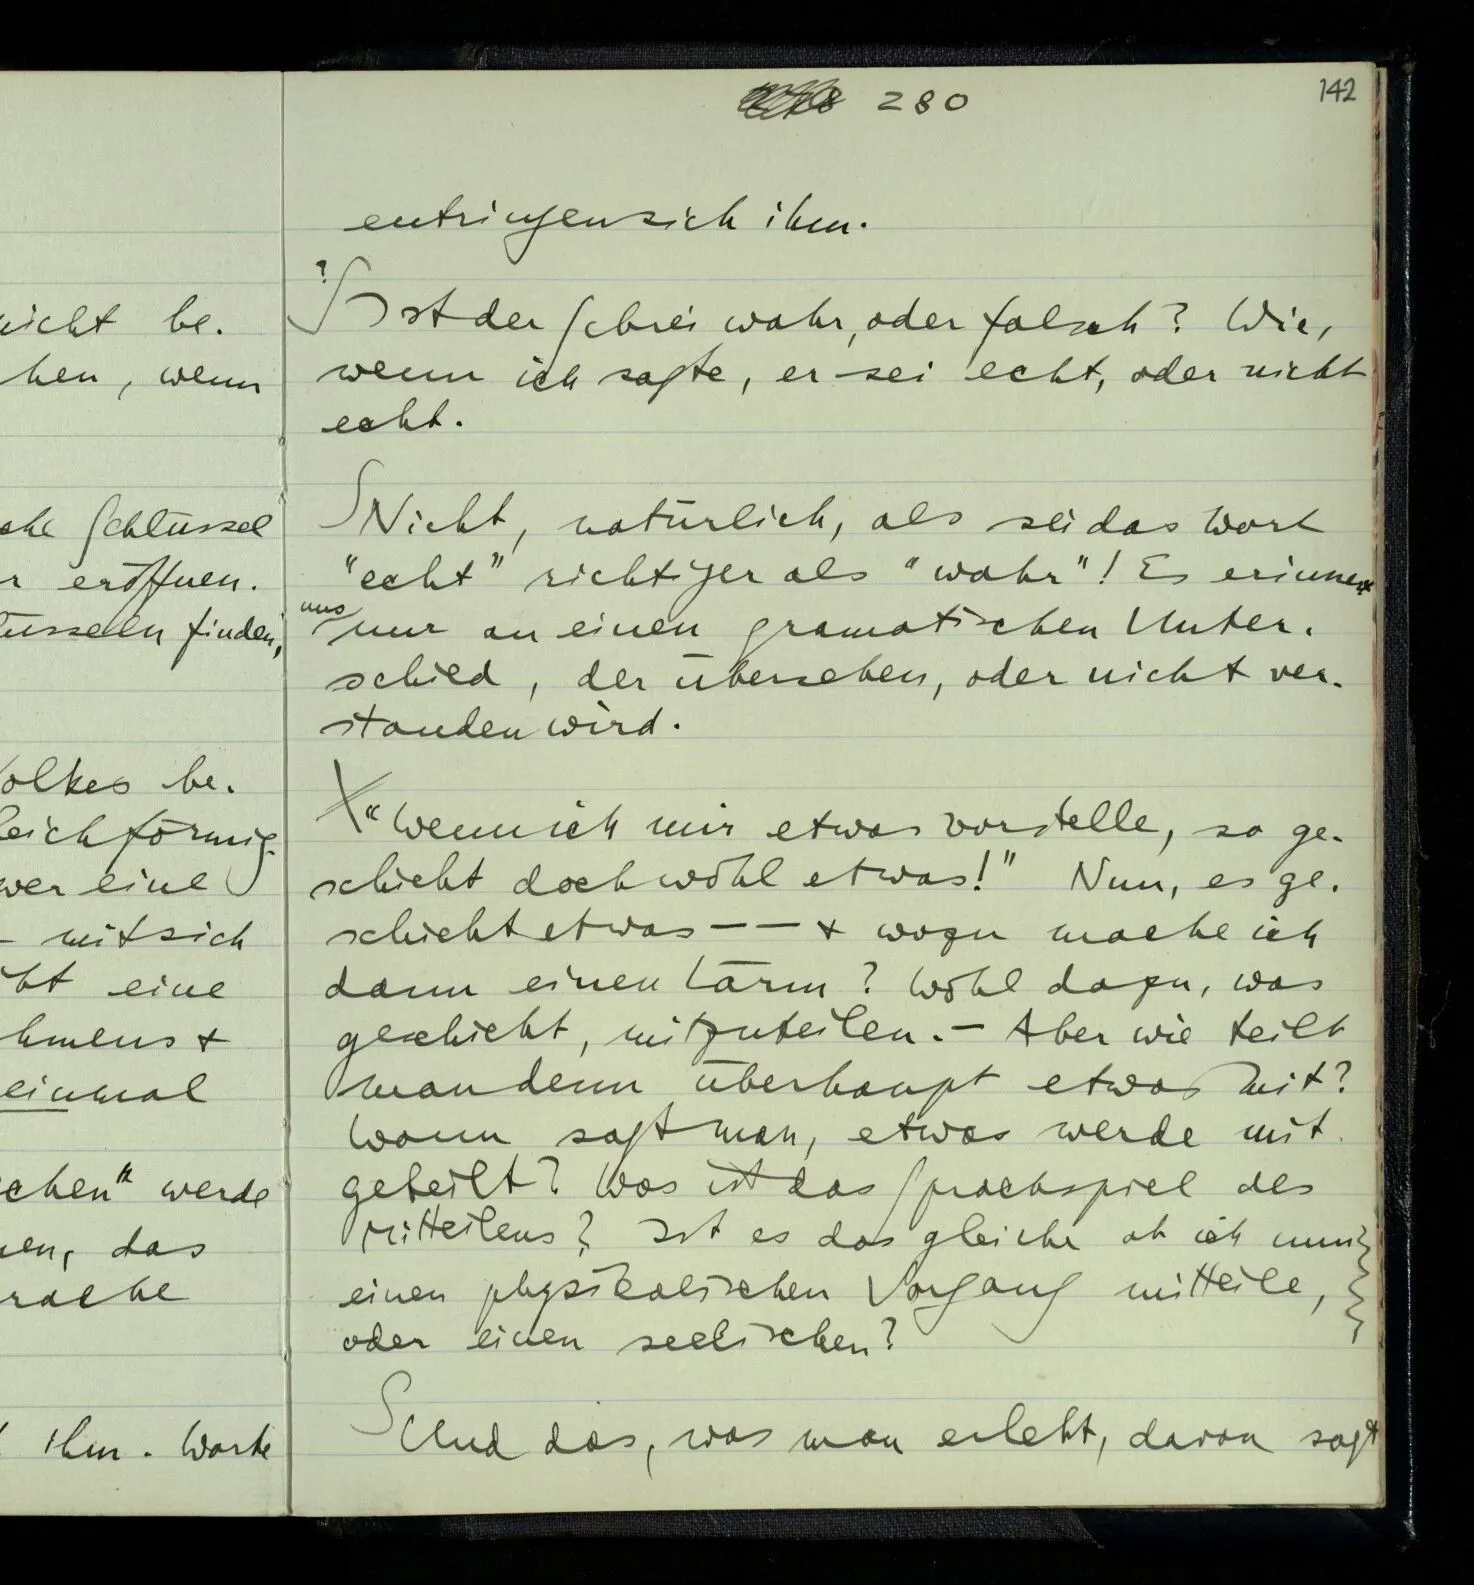 280
142
entringen sich ihm.
? Ist der Schrei wahr, oder falsch? Wie,
wenn ich sagte, er sei echt, oder nicht
echt.
Nicht, natürlich, als sei das Wort
"echt" richtiger als "wahr"! Es erinnert
uns nur an einen gramatischen Unter-
schied, der übersehen, oder nicht ver-
standen wird.
"Wenn ich mir etwas vorstelle, so ge-
schieht doch wohl etwas!" Nun, es ge-
schieht etwas — — + wozu mache ich
dann einen Lärm? Wohl dazu, was
geschieht, mitzuteilen. – Aber wie teilt
man denn überhaupt etwas mit?
Wann sagt man, etwas werde mit-
geteilt? Was ist das Sprachspiel des
Mitteilens? Ist es das gleiche ob ich nun
einen physikalischen Vorgang mitteile,
oder einen seelischen?
Und das, was man erlebt, davon sagt
nicht be-
hen, wenn
Schlüssel
eröffnen.
üsseln finden,
olkes be-
leichförmig
wer eine
– mit sich
eine
hmens +
einmal
chen" werde
en, das
rache
ihm. Worte